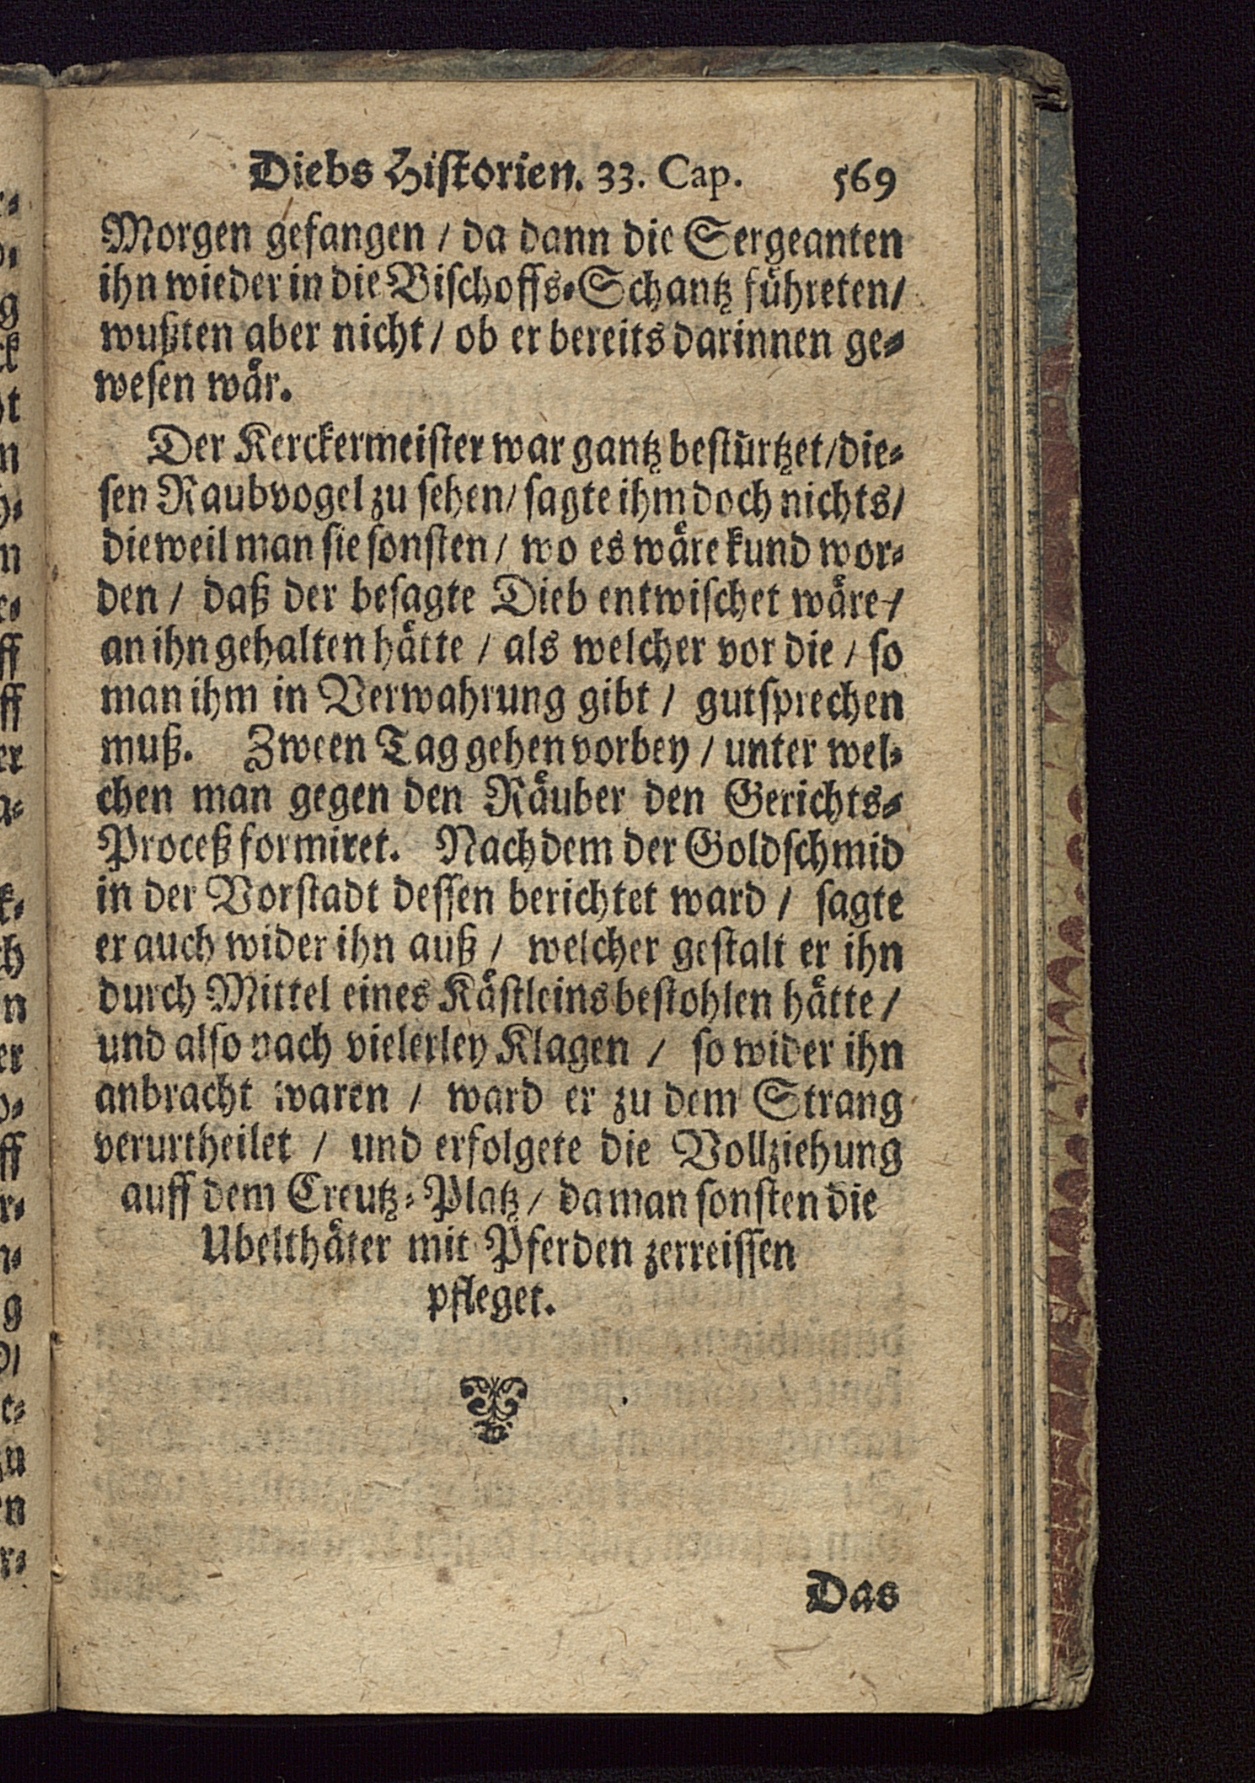 Diebs Historien. 33. Cap. 569
Morgen gefangen / da dann die Sergeanten
ihn wieder in die Bischoffs-Schantz führeten /
wußten aber nicht / ob er bereits darinnen ge-
wesen wär.
Der Kerckermeister war gantz bestürtzet / die-
sen Raubvogel zu sehen / sagte ihm doch nichts /
dieweil man sie sonsten / wo es wäre kund wor-
den / daß der besagte Dieb entwischet wäre /
an ihn gehalten hätte / als welcher vor die / so
man ihm in Verwahrung gibt / gutsprechen
muß. Zween Tag gehen vorbey / unter wel-
chen man gegen den Räuber den Gerichts-
Proceß formiret. Nachdem der Goldschmid
in der Vorstadt dessen berichtet ward / sagte
er auch wider ihn auß / welcher gestalt er ihn
durch Mittel eines Kästleins bestohlen hätte /
und also nach vielerley Klagen / so wider ihn
anbracht waren / ward er zu dem Strang
verurtheilet / und erfolgete die Vollziehung
auff dem Creutz-Platz / da man sonsten die
Ubelthäter mit Pferden zerreissen
pfleget.
Das